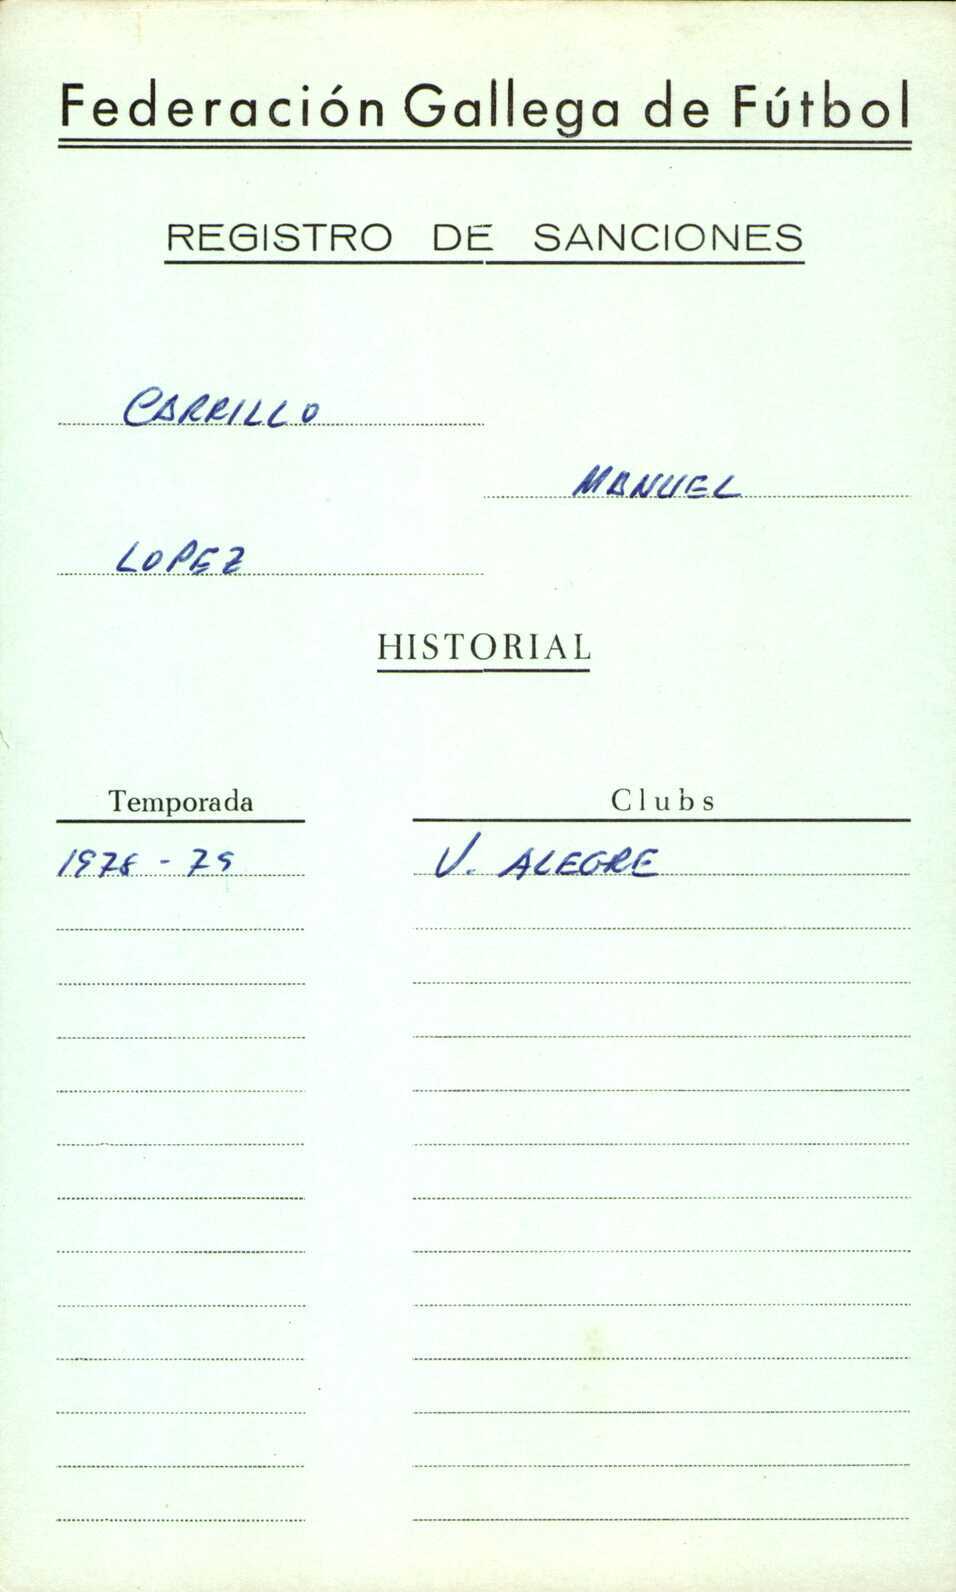 Federación Gallega de Fútbol
REGISTRO DE SANCIONES
CARRILLO
MANUEL
LOPEZ
HISTORIAL
Temporada Clubs
1978-79 V. ALEGRE